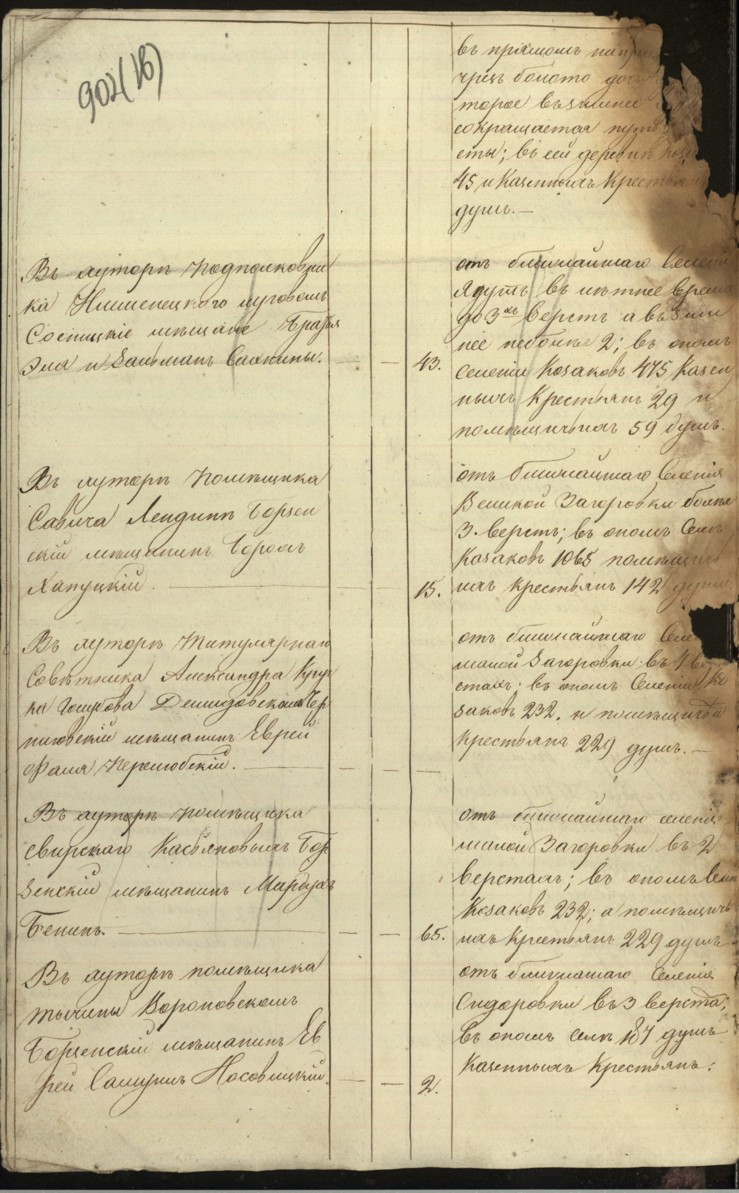 902(16)
въ прямомъ
чрезъ болото
торое въ зимнее
сокращается путь
сты; въ сей деревнѣ
45 и казенныхъ крестьян
душъ.—
Въ хуторѣ Подполковни
ка Иляшенецкого луговомъ
Сосницкіе мѣщане Братья
Эля и Залманъ Сахнины.
43.
отъ ближайшаго Селенія
въ лѣтнее время
до 3хъ верстъ а въ зим
нее неболѣе 2; въ ономъ
селеніи Козаковъ 475 Казен
ныхъ крестьянъ 29 и
помѣщичьихъ 59 душъ.
Въ хуторѣ помѣщика
Савича Борзен
скій мѣщанинъ
Хапуцкій.
15.
отъ ближайшаго Селенія
Великой Загоровки болѣе
3. верстъ; въ ономъ Селѣ
Козаковъ 1065 помѣщичь
ихъ крестьянъ 142 душъ
Въ хуторѣ Титулярнаго
Совѣтника Александра
Демидовскомъ Чер
ниговскій мѣщанинъ Еврей
Фаля Перелюбскій.
отъ ближайшаго Селен
малой Загоровки въ 4 вер
стахъ; въ ономъ Селеніи Ко
заковъ 232. и помѣщичьи
крестьянъ 229 душъ.—
Въ хуторѣ помѣщика
Свирскаго Касьяновымъ Бор
зенскій мѣщанинъ
Бенинъ.
65.
отъ ближайшаго селенія
малой Загоровки въ 2
верстахъ; въ ономъ Селѣ
Козаковъ 232; а помѣщичь
ихъ крестьянъ 229 душъ
Въ хуторѣ помѣщика
Тычины Вороновскомъ
Борзенскій мѣщанинъ Ев
рей Самуилъ Носовицкій.
2.
отъ ближашаго Селенія
Сидоровки въ 3 верста;
въ ономъ селѣ 187 душъ
Казенныхъ крестьянъ.